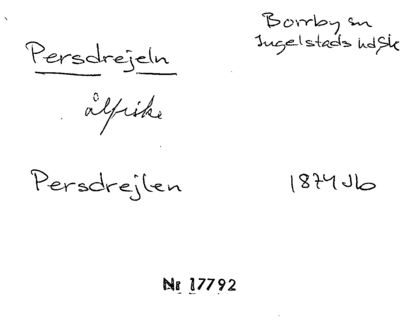 Borrby sn
Persdrejeln
Ingelstads hd Sk
ålfrike
Persdrejlen
1874 Jb
Nr 17792